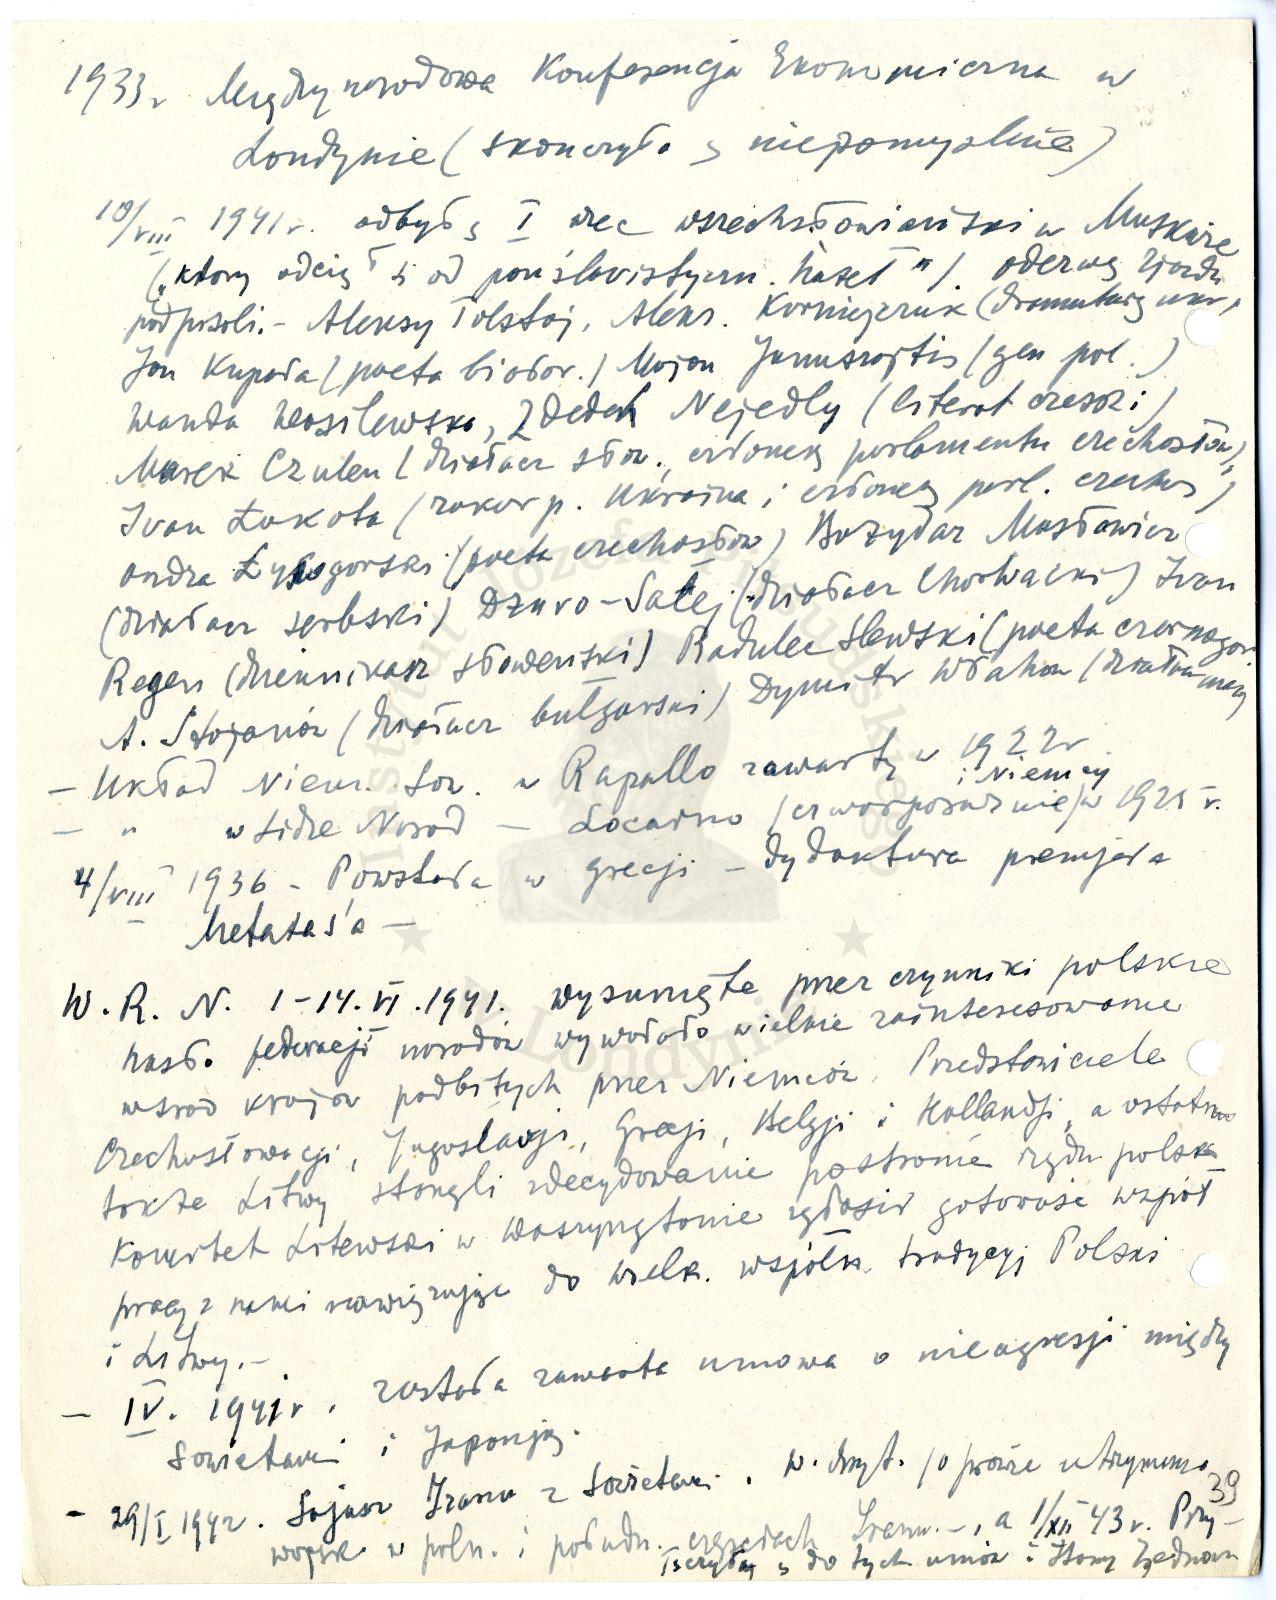 1933 r Międzynarodowa Konferencja Ekonomiczna w
Londynie (skończyła s niepomyślnie)
10/VIII 1941 r. odbył s I wiec wszechsłowiański w Moskwie
("który odciął s od panslavistyczn. haseł"). odezwę zjazdu
podpisali. - Aleksy Tołstoj, Aleks. Korniejczuk (dramaturg ukr.,
Jan Kupała (poeta białor.) Marjan Januszajtis (gen pol.)
Wanda Wasilewska, Zdenek Nejedly (literat czeski)
Marek Czulen (działacz słow., członek parlamentu czechosłow)
Ivan Łokota (zakarp. Ukraina i członek parl. czechos)
Ondra Łysogorski (poeta czechosłow) Bożydar Masłowicz
(działacz serbski) Dżuro-Salej (działacz Chorwacki) Ivan
Regen (dziennikarz słoweński) Radule Stewski (poeta czarnogór
A. Stojanów (działacz bułgarski) Dymitr Włahow (działacz mac
- Układ Niem. Sow. w Rapallo zawarty w 1922 r
- " w Lidze Narod - Locarno (czworporoz i Niemcy) w 1925 r.
4/VIII 1936 - Powstała w Grecji - dyktatura premjera
Metaxas'a -
W. R. N. 1-14.VI.1941. Wysunięte przez czynniki polskie
hasło federacji narodów wywołało wielkie zainteresowanie
wsrod krajów podbitych przez Niemców. Przedstawiciele
Czechosłowacji, Jugosławji, Grecji, Belgji i Hollandji, a ostatnio
także Litwy stanęli zdecydowanie po stronie rządu polsk
Komitet Litewski w Waszyngtonie zgłosił gotowość współ
pracy z nami nawiązując do wielk. wspóln. tradycyj Polski
i Litwy. -
- IV. 1941 r. została zawarta umowa o nieagresji między
Sowietami i Japonją.
- 29/I 1942. Sojusz Iranu z Sowietami. W. Bryt. (o prawie utrzymania
wojsk w półn. i połudn. częściach Iranu. -, a 1/XII 43 r. Przy-
łączyły s do tych umów i Stany Zjednocz
39
Instytut Józefa Piłsudskiego
w Londynie